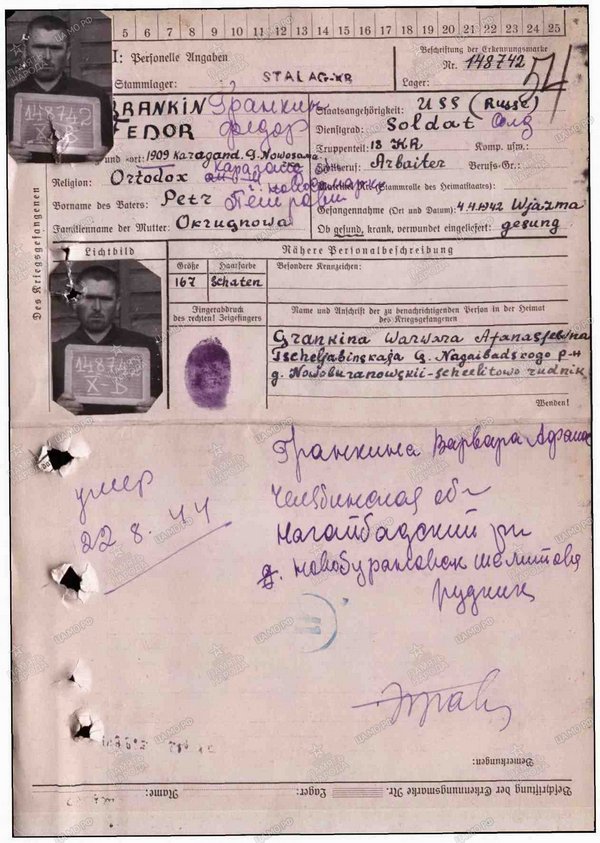 5 6 7 8 9 10 11 12 13 14 15 16 17 18 19 20 21 22 23 24 25
I: Personelle Angaben
Beschriftung der Erkennungsmarke
Nr. 148742
Stammlager: STALAG-KR
Lager:
54
148742
X-B
RANKIN Гранкин
FEDOR Федор
Staatsangehörigkeit: USS (Russe)
Dienstgrad: Soldat Солд
Truppenteil: 18 KR Komp. usw.:
und -ort: 1909 Karagand. G. Nowosana
Arbeiter Berufs-Gr.:
Religion: Ortodox
(Stammrolle des Heimatstaates):
Vorname des Vaters: Petr Петрович
Gefangennahme (Ort und Datum): 4.4.1942 Wjazma
Familienname der Mutter: Okrugnowa
Ob gesund, krank, verwundet eingeliefert: gesung
Des Kriegsgefangenen
Lichtbild
Nähere Personalbeschreibung
Größe Haarfarbe Besondere Kennzeichen:
167 Schaten
Fingerabdruck
des rechten! Zeigefingers
Name und Anschrift der zu benachrichtigenden Person in der Heimat
des Kriegsgefangenen
148742
X-B
Grankina Warwara Afanasjewna
Tscheljabinskaja G. Nagaibadskogo p-н
g. Nowoburanowskii-scheelitowo rudnik
Wenden!
Гранкина Варвара Афана
умер
22 8. 44
Челябинская обл
Нагайбадский рн
д. Новобурановск шелитова
рудник
Bemerkungen:
Beschriftung der Erkennungsmarke Nr. Lager: Name:
ЦАМО.РФ
ПАМЯТЬ НАРОДА